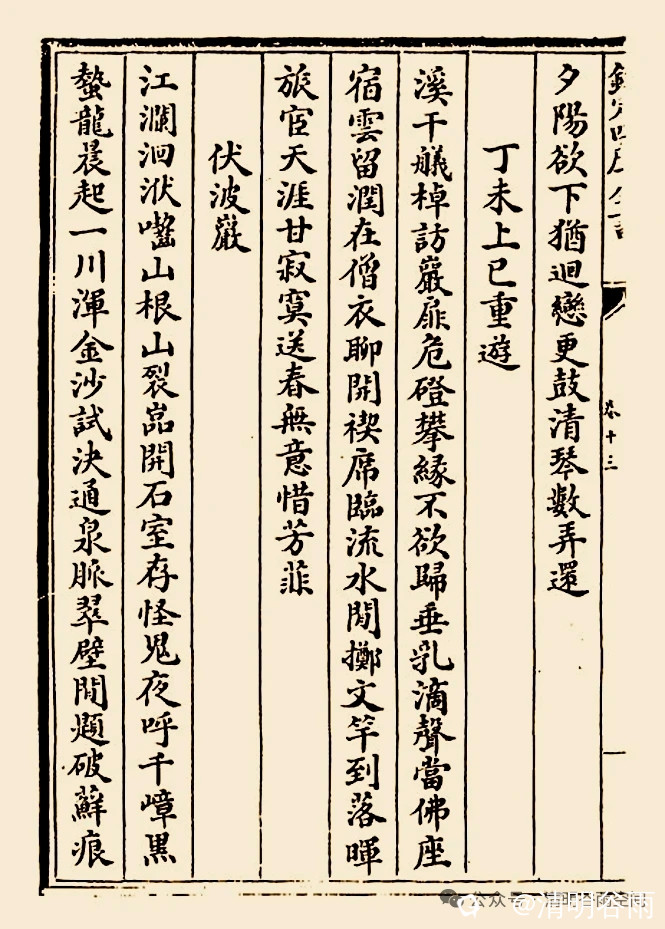 欽定四庫全書
卷十三
夕陽欲下猶迴戀更鼓清琴數弄還
丁未上巳重遊
溪干艤棹訪巖扉危磴攀緣不欲歸垂乳滴聲當佛座
宿雲留潤在僧衣聊開禊席臨流水閒擲文竿到落暉
旅宦天涯甘寂寞送春無意惜芳菲
伏波巖
江瀾洄洑囓山根山裂嵓開石室存怪鬼夜呼千嶂黒
蟄龍晨起一川渾金沙試決通泉脈翠壁閒題破蘚痕
公众号
@清明谷雨